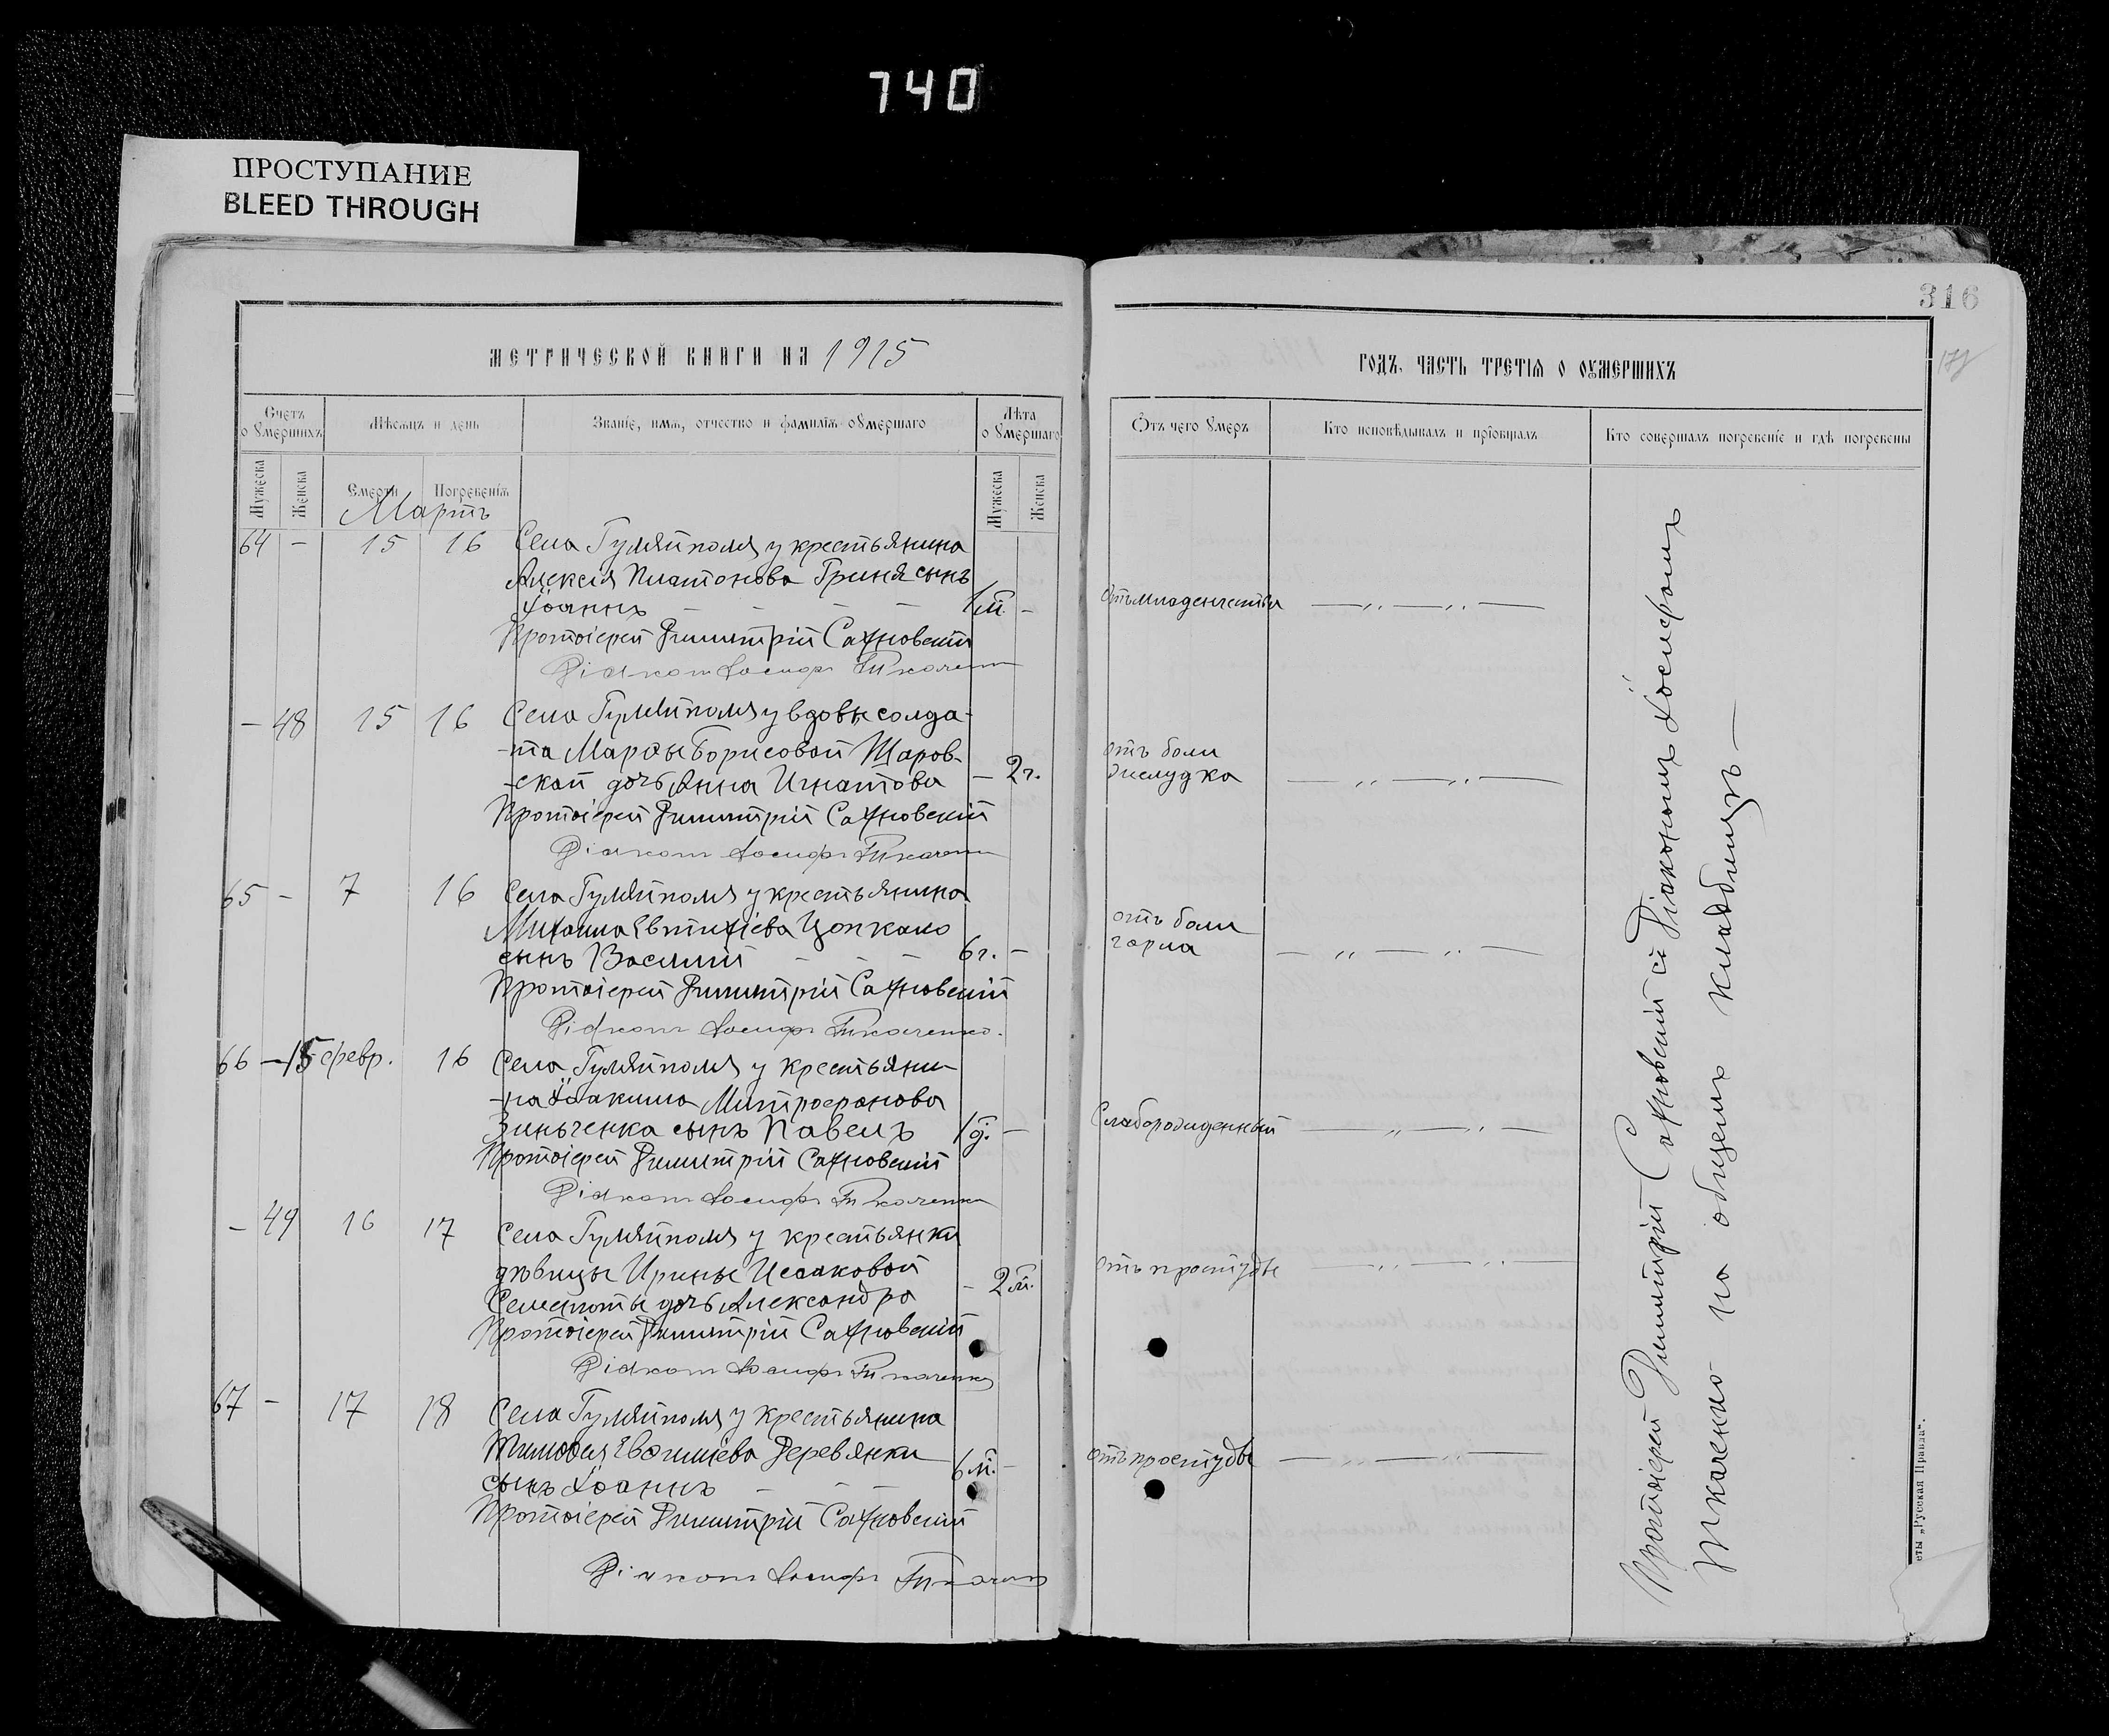 740
ПРОСТУПАНИЕ
BLEED THROUGH
316
МЕТРИЧЕСКОЙ КНИГИ НА 1915
ГОДЪ, ЧАСТЬ ТРЕТІѦ О ОУМЕРШИХЪ
Счетъ о ѹмершихъ
Мѣсѧцъ и день
Званіе, имѧ, отчество и фамиліѧ ѹмершаго
Лѣта ѹмершаго
Ѿтъ чего ѹмеръ
Кто исповѣдывалъ и пріобщалъ
Кто совершалъ погребеніе и гдѣ погребены
Мужеска
Женска
Смерти
Погребеніѧ
Мужеска
Женска
Мартъ
64 - 15 16 Села Гуляйполя у крестьянина
Алексія Платонова Гриня сынъ
Іоаннъ - - - - 1 м. -
отъ младенчества —,,—,,—
Протоіерей Димитрій Сахновскій
Діаконъ Іосифъ Ткаченко
- 48 15 16 Села Гуляйполя у вдовы солда-
-та Марѳы Борисовой Щаров-
-ской дочь Анна Игнатова - 2 г.
отъ боли
желудка —,,—,,—
Протоіерей Димитрій Сахновскій
Діаконъ Іосифъ Ткаченко
65 - 7 16 Села Гуляйполя у крестьянина
Михаила Евтихіева Цопкало
сынъ Василій - - - 6 г. -
отъ боли
горла —,,—,,—
Протоіерей Димитрій Сахновскій
Діаконъ Іосифъ Ткаченко.
66 - 15 февр. 16 Села Гуляйполя у крестьяни-
-на Іоакима Митрофанова
Зинченка сынъ Павелъ 1 д. -
Слаборожденный —,,—,,—
Протоіерей Димитрій Сахновскій
Діаконъ Іосифъ Ткаченко
- 49 16 17 Села Гуляйполя у крестьянки
дѣвицы Ирины Исааковой
дочь Александра - 2 м.
отъ простуды —,,—,,—
Протоіерей Димитрій Сахновскій
Діаконъ Іосифъ Ткаченко
67 - 17 18 Села Гуляйполя у крестьянина
Тимоѳея Евѳиміева Деревянки
сынъ Іоаннъ - - - 6 м. -
отъ простуды —,,—,,—
Протоіерей Димитрій Сахновскій
Діаконъ Іосифъ Ткаченко
Протоіерей Димитрій Сахновскій съ Діакономъ Іосифомъ
Ткаченко на общемъ кладбищѣ —
еты „Русская Правда“.